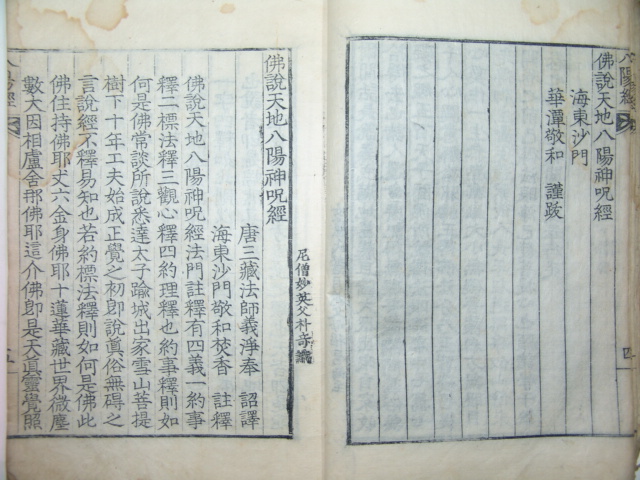 八陽經
佛說天地八陽神呪經
海東沙門
華潭敬和 謹跋
四
尼僧妙英父朴奇
佛說天地八陽神呪經
唐三藏法師義淨奉 詔譯
海東沙門敬和焚香 註釋
佛說天地八陽神呪經法門註釋有四義一約事
釋二標法釋三觀心釋四約理釋也約事釋則如
何是佛常談所說悉達太子踰城出家雪山菩提
樹下十年工夫始成正覺之初卽說眞俗無碍之
言說經不釋易知也若約標法釋則如何是佛此
佛住持佛耶丈六金身佛耶十蓮華藏世界微塵
數大因相盧舍那佛耶這介佛卽是天眞靈覺照
八陽經
五